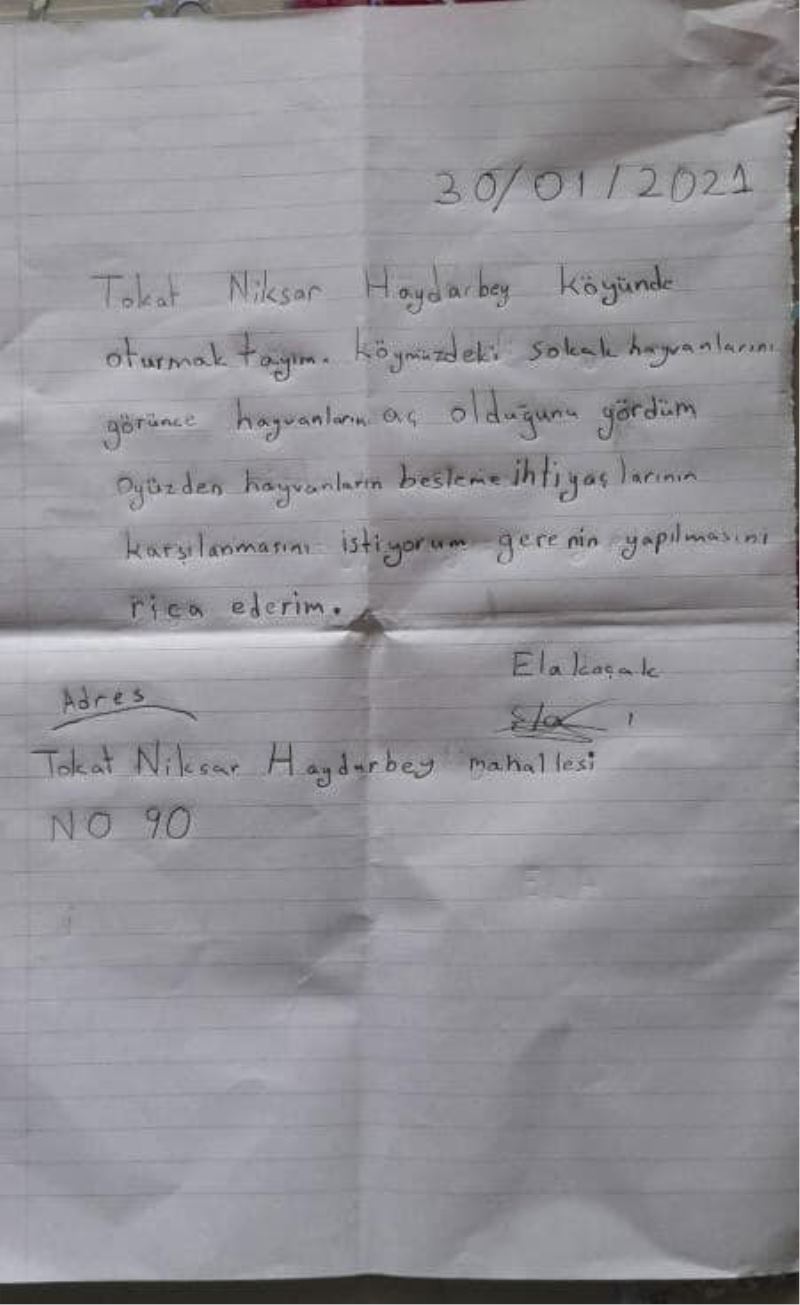 30/01/2021
Tokat Niksar Haydarbey köyünde
oturmak tayım. köymüzdeki sokak hayvanlarını
görünce hayvanların aç olduğunu gördüm
Oyüzden hayvanların besleme ihtiyaçlarının
karşılanmasını istiyorum gerenin yapılmasını
rica ederim.
Ela koçak
Ela
Adres
Tokat Niksar Haydarbey mahallesi
NO 90